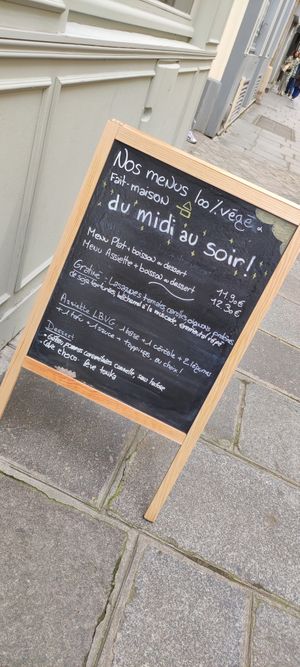 Nos menus 100% végé &
Fait-maison
du midi au soir!
Menu Plat + boisson ou dessert 11.90€
Menu Assiette + boisson ou dessert 12.90€
Gratiné: Lasagnes tomates, carottes, oignons, protéines
de soja texturées, béchamel à la muscade, emmental râpé
Assiette LBVG 1 base + 1 céréale + 2 légumes
+ 1 + 1 sauce + Toppings, au choix!
Dessert
pommes caramélisées cannelle, sans lactose
Cake choco. fève tonka